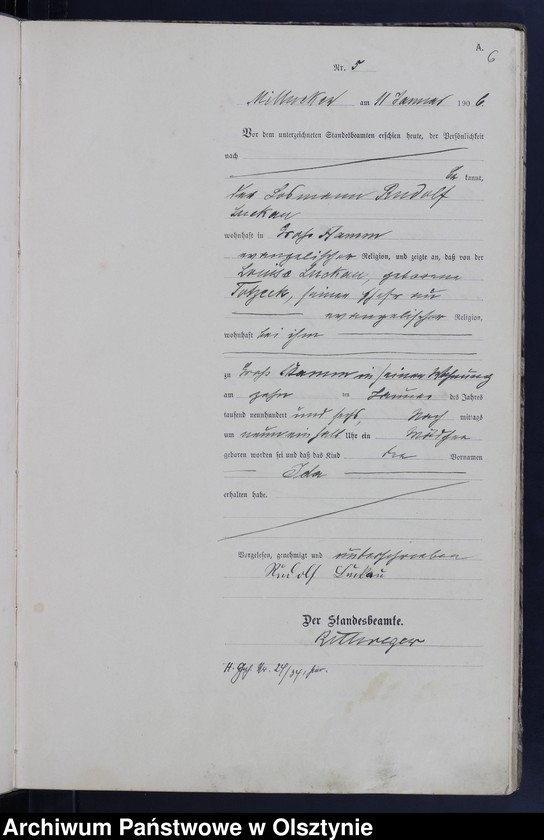 A.
6
Nr. 5
am 11 Januar 1906.
Vor dem unterzeichneten Standesbeamten erschien heute, der Persönlichkeit
nach
be kannt,
der Losmann Rudolf
Luckau
wohnhaft in Groß Namm
evangelischer Religion, und zeigte an, daß von der
Louise Luckau, geborene
Totzeck, seiner Ehefrau
evangelischer Religion,
wohnhaft bei ihm
zu Groß in seiner Wohnung
am zehn ten Januar des Jahres
tausend neunhundert und sechs Nach mittags
um neuneinhalb Uhr ein Mädchen
geboren worden sei und daß das Kind den Vornamen
Ida
erhalten habe.
Vorgelesen, genehmigt und unterschrieben
Rudolf Luckau
Der Standesbeamte.
Rittweger
Archiwum Państwowe w Olsztynie